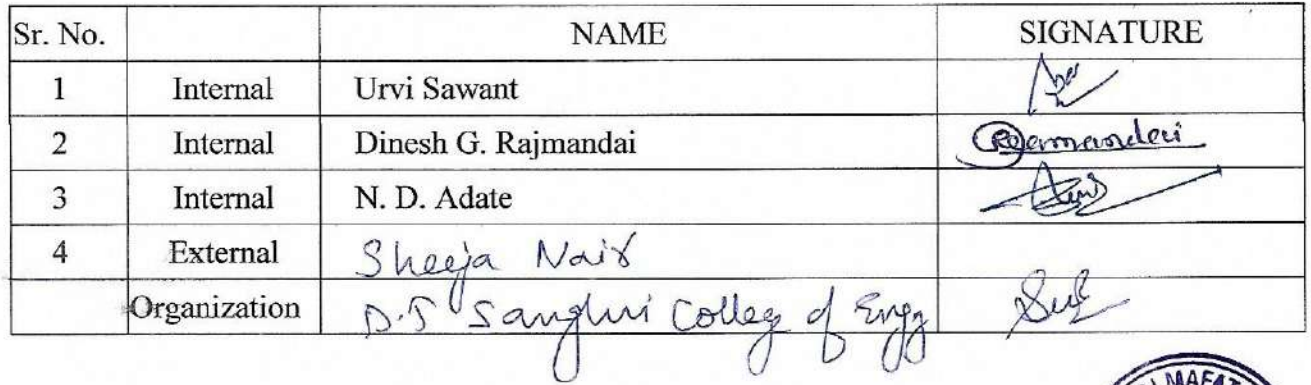 Sr. No. NAME SIGNATURE
1 Internal Urvi Sawant
2 Internal Dinesh G. Rajmandai Rajmandai
3 Internal N. D. Adate
4 External Sheeja Nair
Organization D.J Sanghvi College of Engg